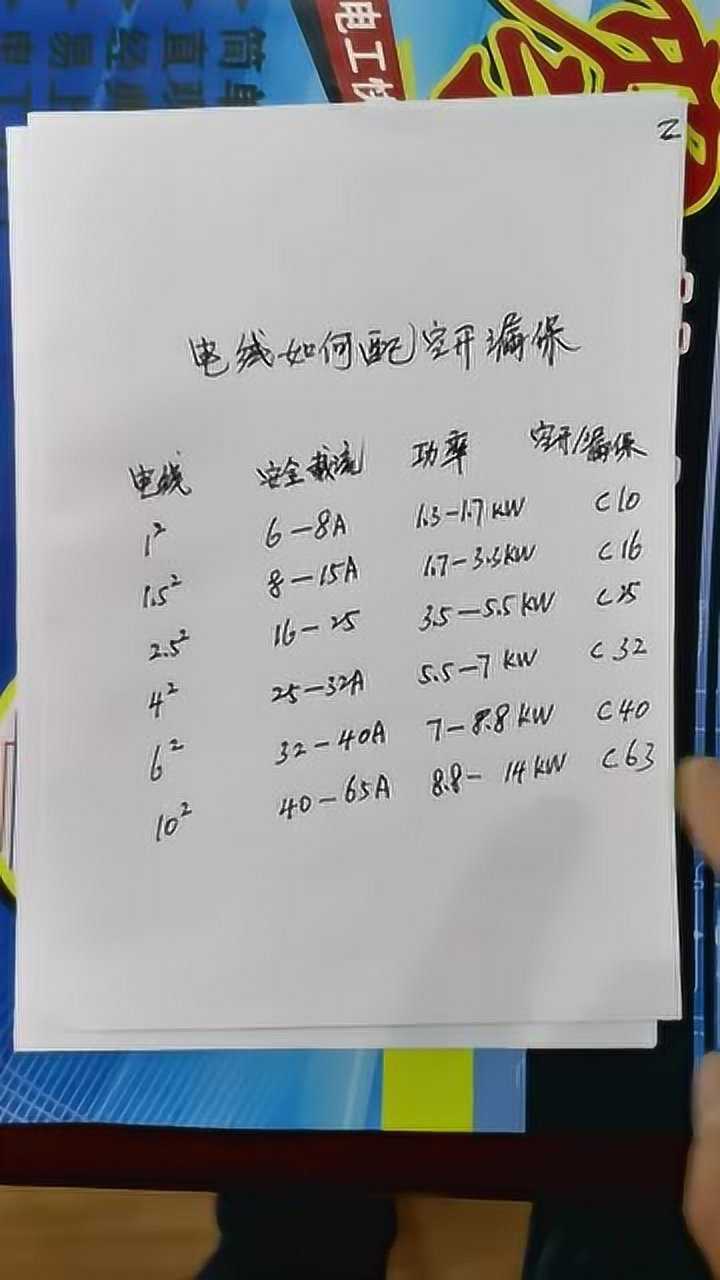 电工快
简单
直观
经
易上
申工
2
电线如何配空开漏保
电线 安全载流 功率 空开/漏保
1² 6-8A 1.3-1.7KW C10
1.5² 8-15A 1.7-3.3KW C16
2.5² 16-25 3.5-5.5KW C25
4² 25-32A 5.5-7KW C32
6² 32-40A 7-8.8KW C40
10² 40-65A 8.8-14KW C63